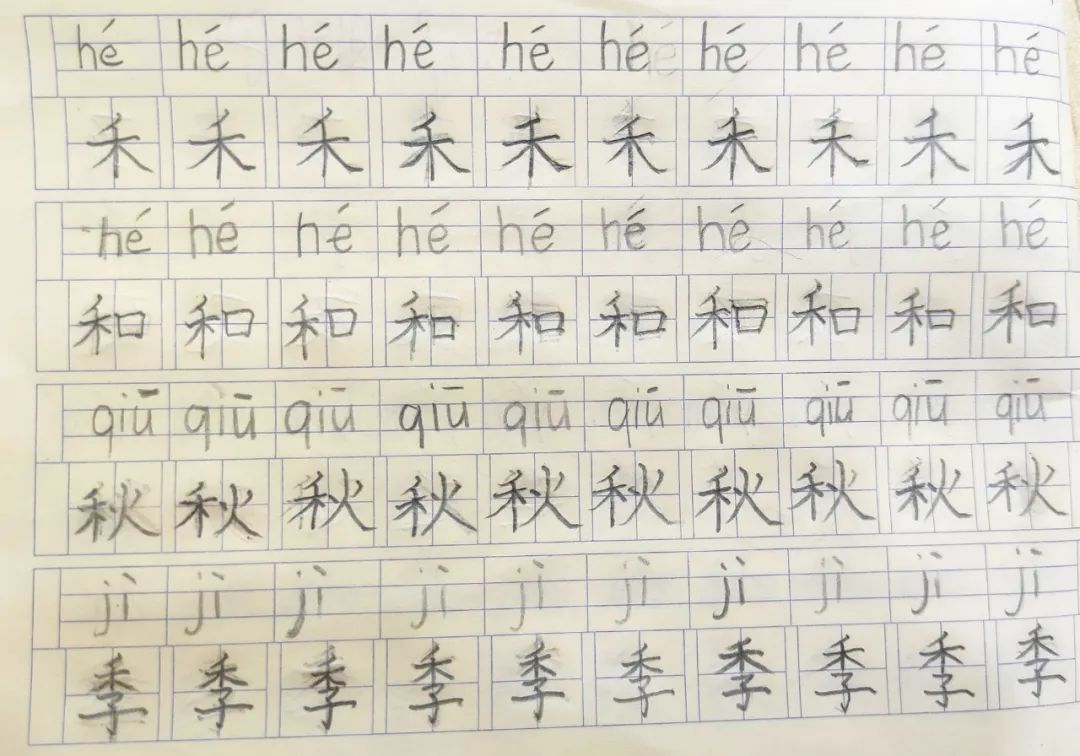 hé hé hé hé hé hé hé hé hé hé
禾 禾 禾 禾 禾 禾 禾 禾 禾 禾
hé hé hé hé hé hé hé hé hé hé
和 和 和 和 和 和 和 和 和 和
qiū qiū qiū qiū qiū qiū qiū qiū qiū qiū
秋 秋 秋 秋 秋 秋 秋 秋 秋 秋
jì jì jì jì jì jì jì jì jì jì
季 季 季 季 季 季 季 季 季 季